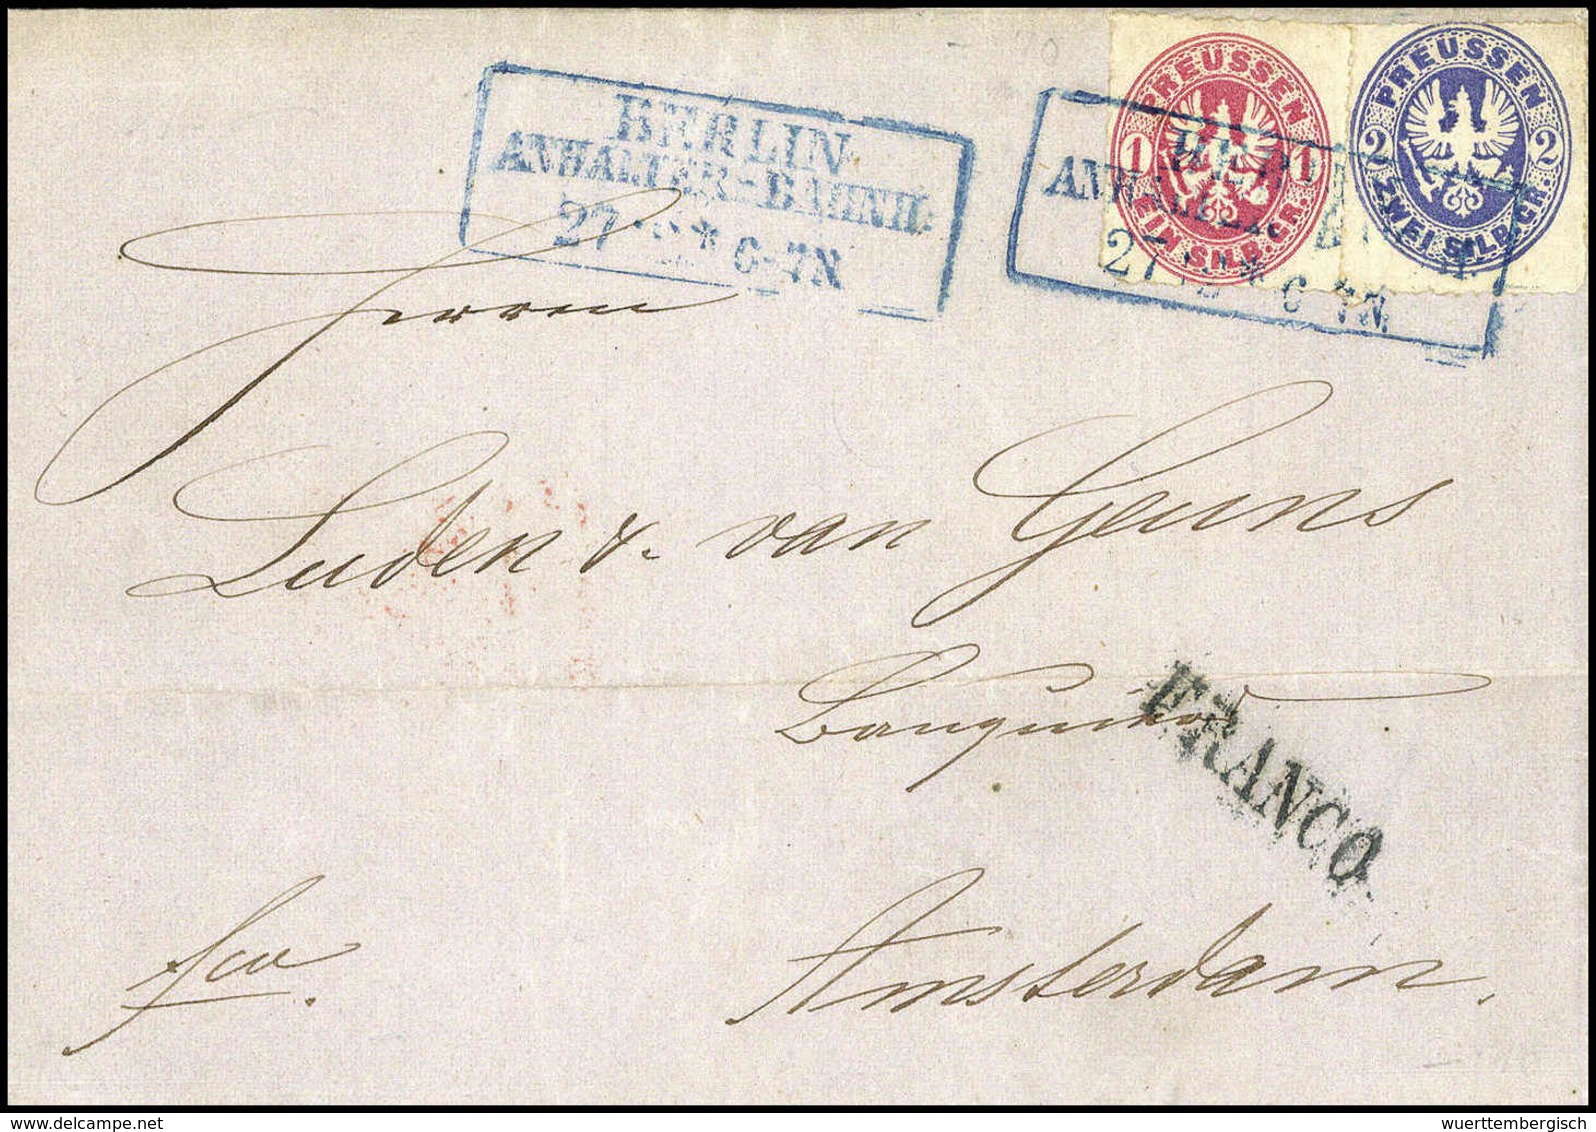 PREUSSEN
1 1
EIN SILB.GR.
PREUSSEN
2 2
ZWEI SILB.GR.
BERLIN
ANHALTER-BAHNH.
27 * 6-7N
27 * 6 7N
Herrn
Luden & van Geuns
Banquiers
FRANCO
fco
Amsterdam.
www.delcampe.net
wuerttembergisch